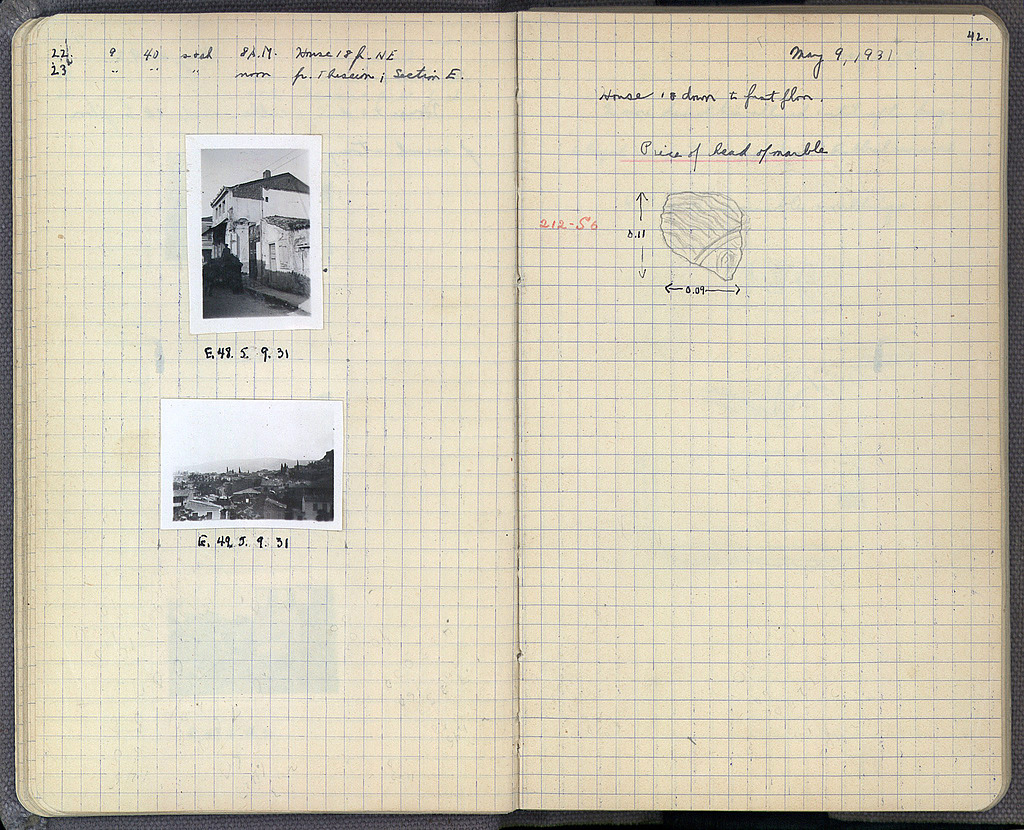 22. 9 40 8 A.M. House 18 fr. NE
23 " " " noon fr. Theseion; Section E.
E. 48. 5. 9. 31
E. 49. 5. 9. 31
42.
May 9, 1931
House 18 down to first floor.
Piece of head of marble
212-56
0.11
0.09